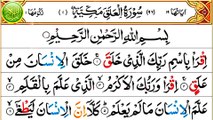 سُوْرَةُ الْعَلَقِ مَكِّيَّةٌ
بِسْمِ اللّٰهِ الرَّحْمٰنِ الرَّحِيْمِ
اِقْرَاْ بِاسْمِ رَبِّكَ الَّذِیْ خَلَقَ خَلَقَ الْاِنْسَانَ مِنْ
عَلَقٍ اِقْرَاْ وَرَبُّكَ الْاَكْرَمُ الَّذِیْ عَلَّمَ بِالْقَلَمِ
عَلَّمَ الْاِنْسَانَ مَا لَمْ يَعْلَمْ كَلَّا اِنَّ الْاِنْسَانَ لَيَطْغٰۤی